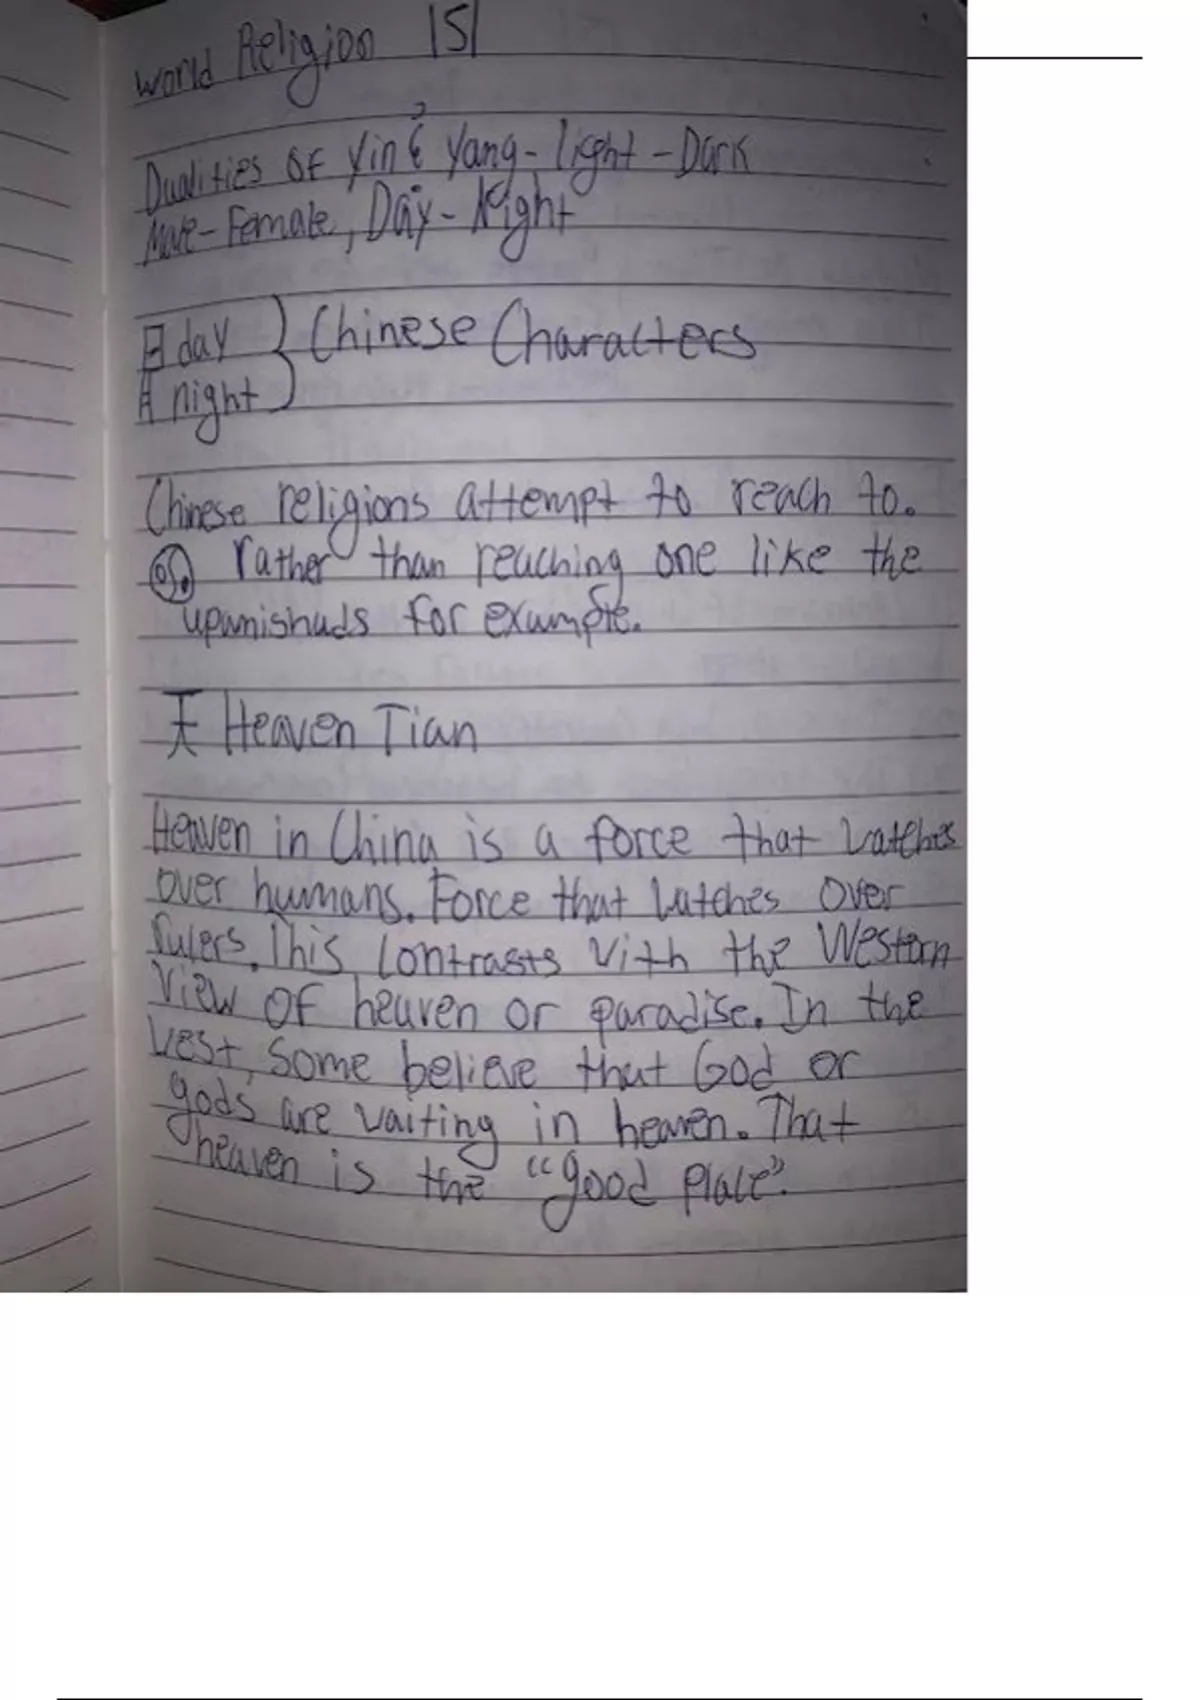 World Religion 151
Dualities of Yin & Yang - light - Dark
Male - Female, Day - Night
日 day } Chinese Characters
月 night
Chinese religions attempt to reach to.
rather than reaching one like the
upanishads for example.
天 Heaven Tian
Heaven in China is a force that watches
over humans. Force that watches over
rulers. This contrasts with the Western
View of heaven or paradise. In the
West, some believe that God or
gods are waiting in heaven. That
heaven is the "good place".